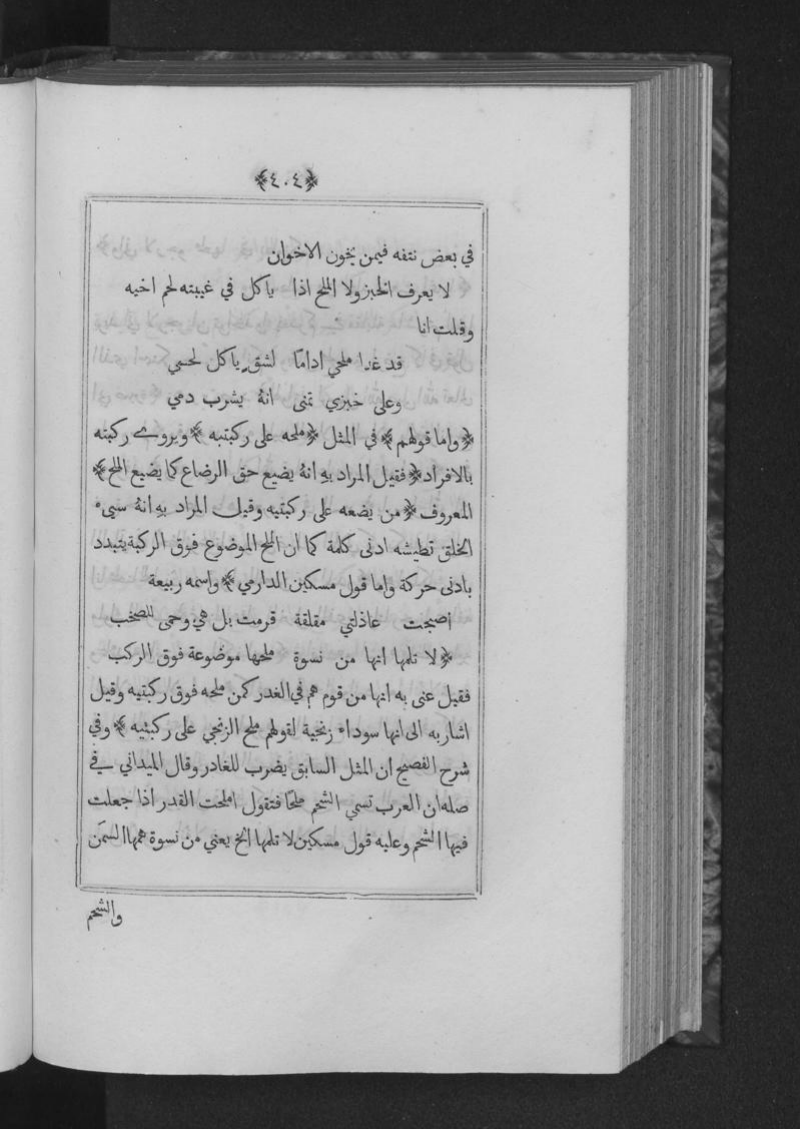 ﴿٤٠٤﴾
في بعض نتفه فيمن يخون الاخوان
لا يعرف الخبز ولا الملح اذا ياكل في غيبته لحم اخيه
وقلت انا
قد غدا ملحي اداما لشقٍ ياكل لحمي
وعلى خبزي تمنى انهُ يشرب دمي
﴿واما قولهم﴾ في المثل ﴿ملحه على ركبتيه﴾ ويروى ركبته
بالافراد ﴿فقيل المراد بهِ انهُ يضيع حق الرضاع كما يضيع الملح﴾
المعروف ﴿من يضعه على ركبتيه وقيل المراد بهِ انهُ سيىء
الخلق تطيشه ادنى كلمة كما ان الملح الموضوع فوق الركبة يتبدد
بادنى حركة واما قول مسكين الدارمي﴾ واسمه ربيعة
اصبحت عاذلتي مقلقة قرمت بل هي وحمى للصخب
﴿لا تلمها انها من نسوة ملحها موضوعة فوق الركب
فقيل عنى به انها من قوم هم في الغدر كمن ملحه فوق ركبتيه وقيل
اشار به الى انها سوداء زنجية لقولهم ملح الزنجي على ركبتيه﴾ وفي
شرح الفصيح ان المثل السابق يضرب للغادر وقال الميداني في
صله ان العرب تسمي الشحم ملحًا فتقول املحت القدر اذا جعلت
فيها الشحم وعليه قول مسكين لا تلمها الخ يعني من نسوة همها السمن
والشحم